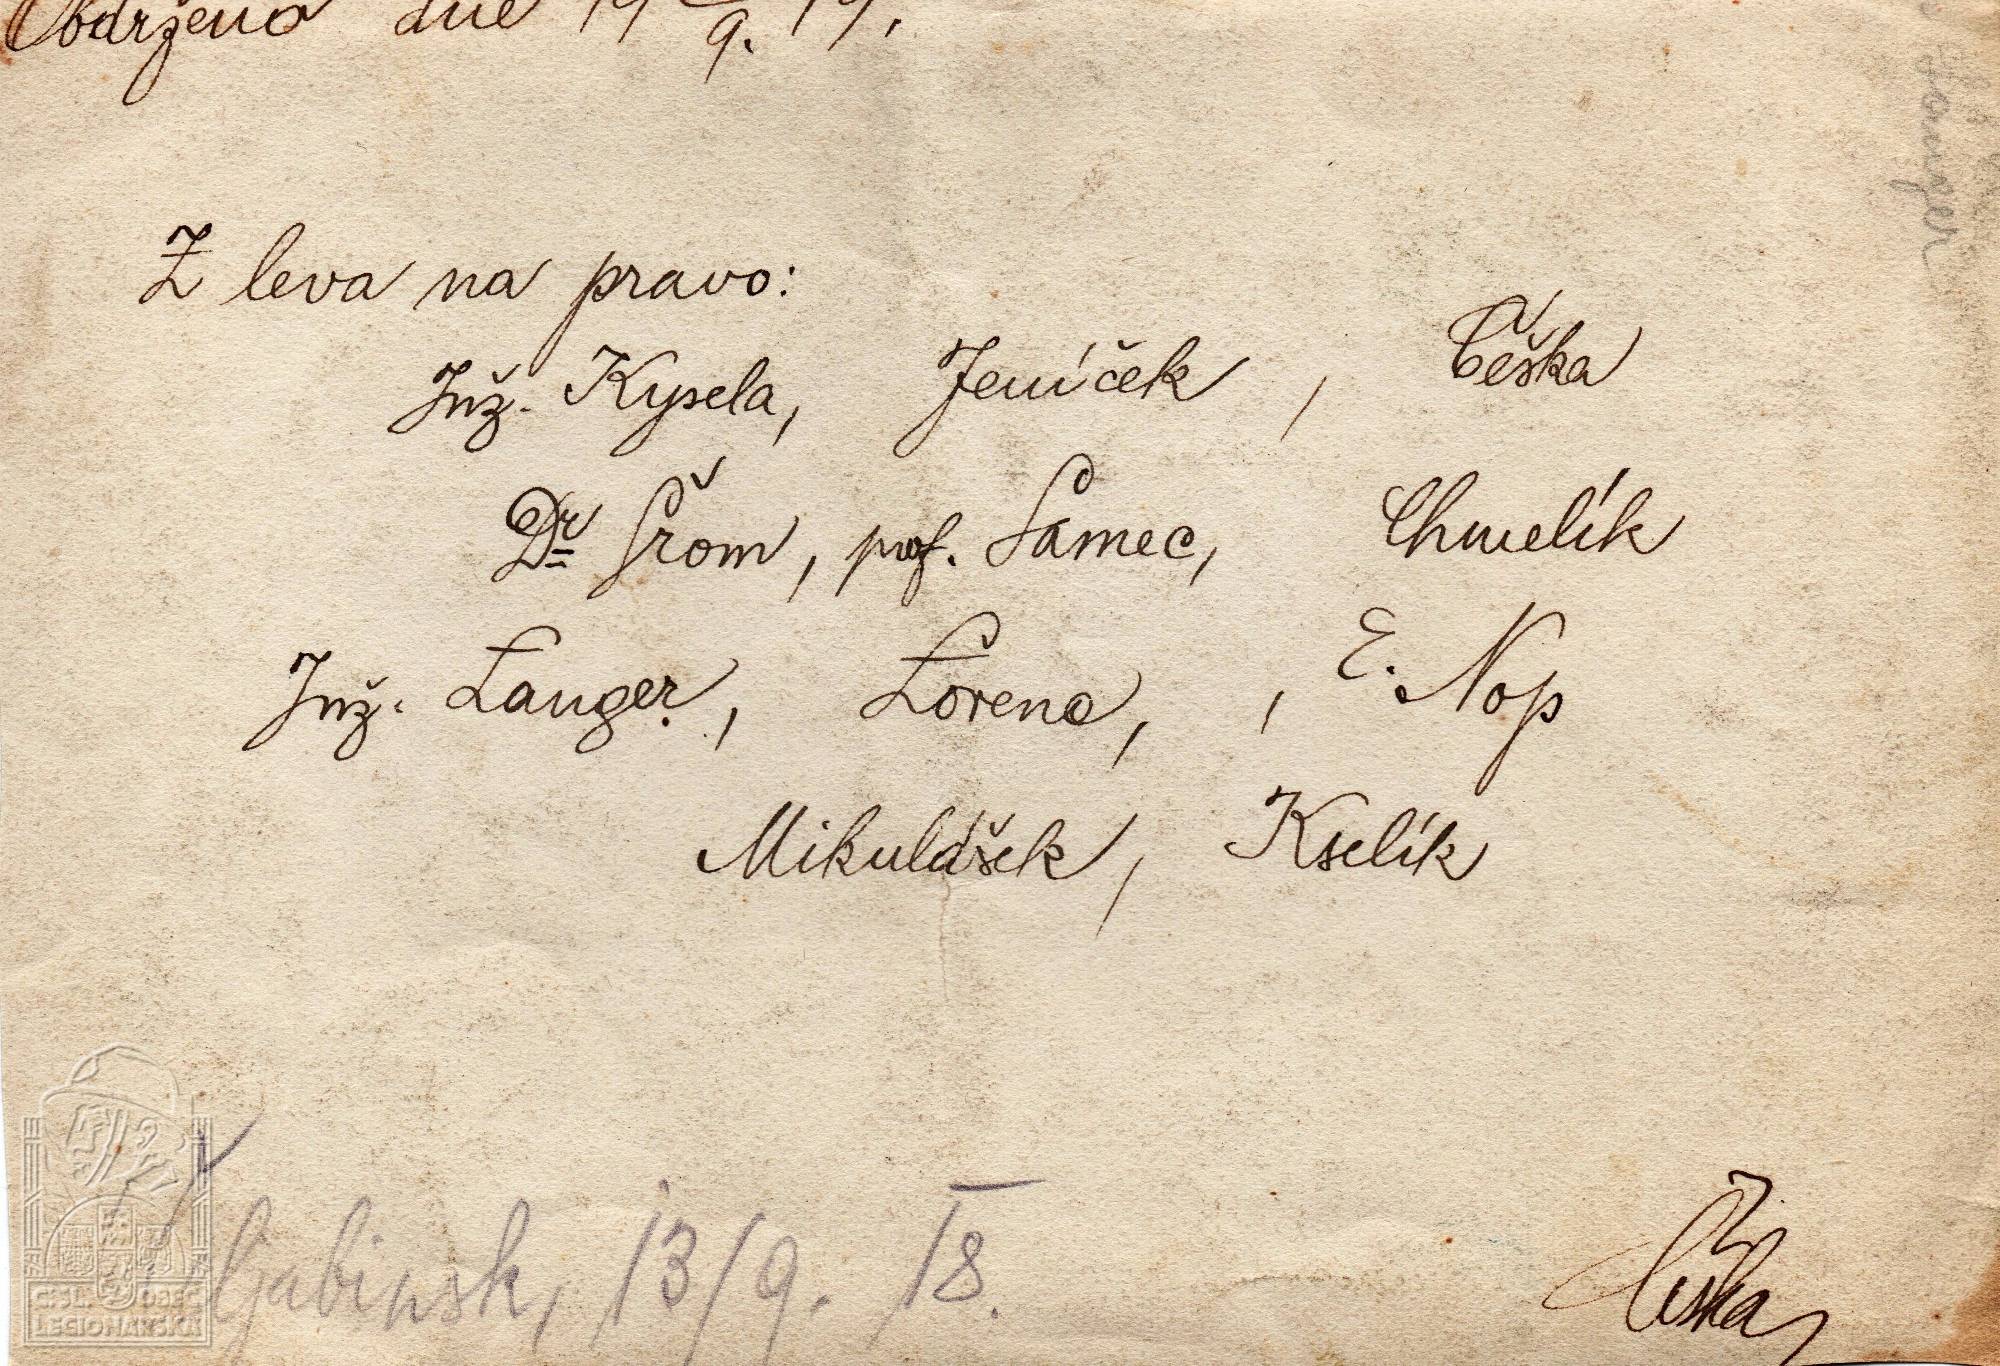 Obdrženo dne 19 9. 19.
Z leva na pravo:
Juž. Kysela, Jeníček, Češka
Dr Šrom, prof. Samec, Chmelík
Inž. Langer, Lorenc, , E. Nop
Mikulášek, Kselík
Čeljabinsk, 13/9. 18.
Češka
Langer
Č.SL. OBEC
LEGIONÁŘSKÁ